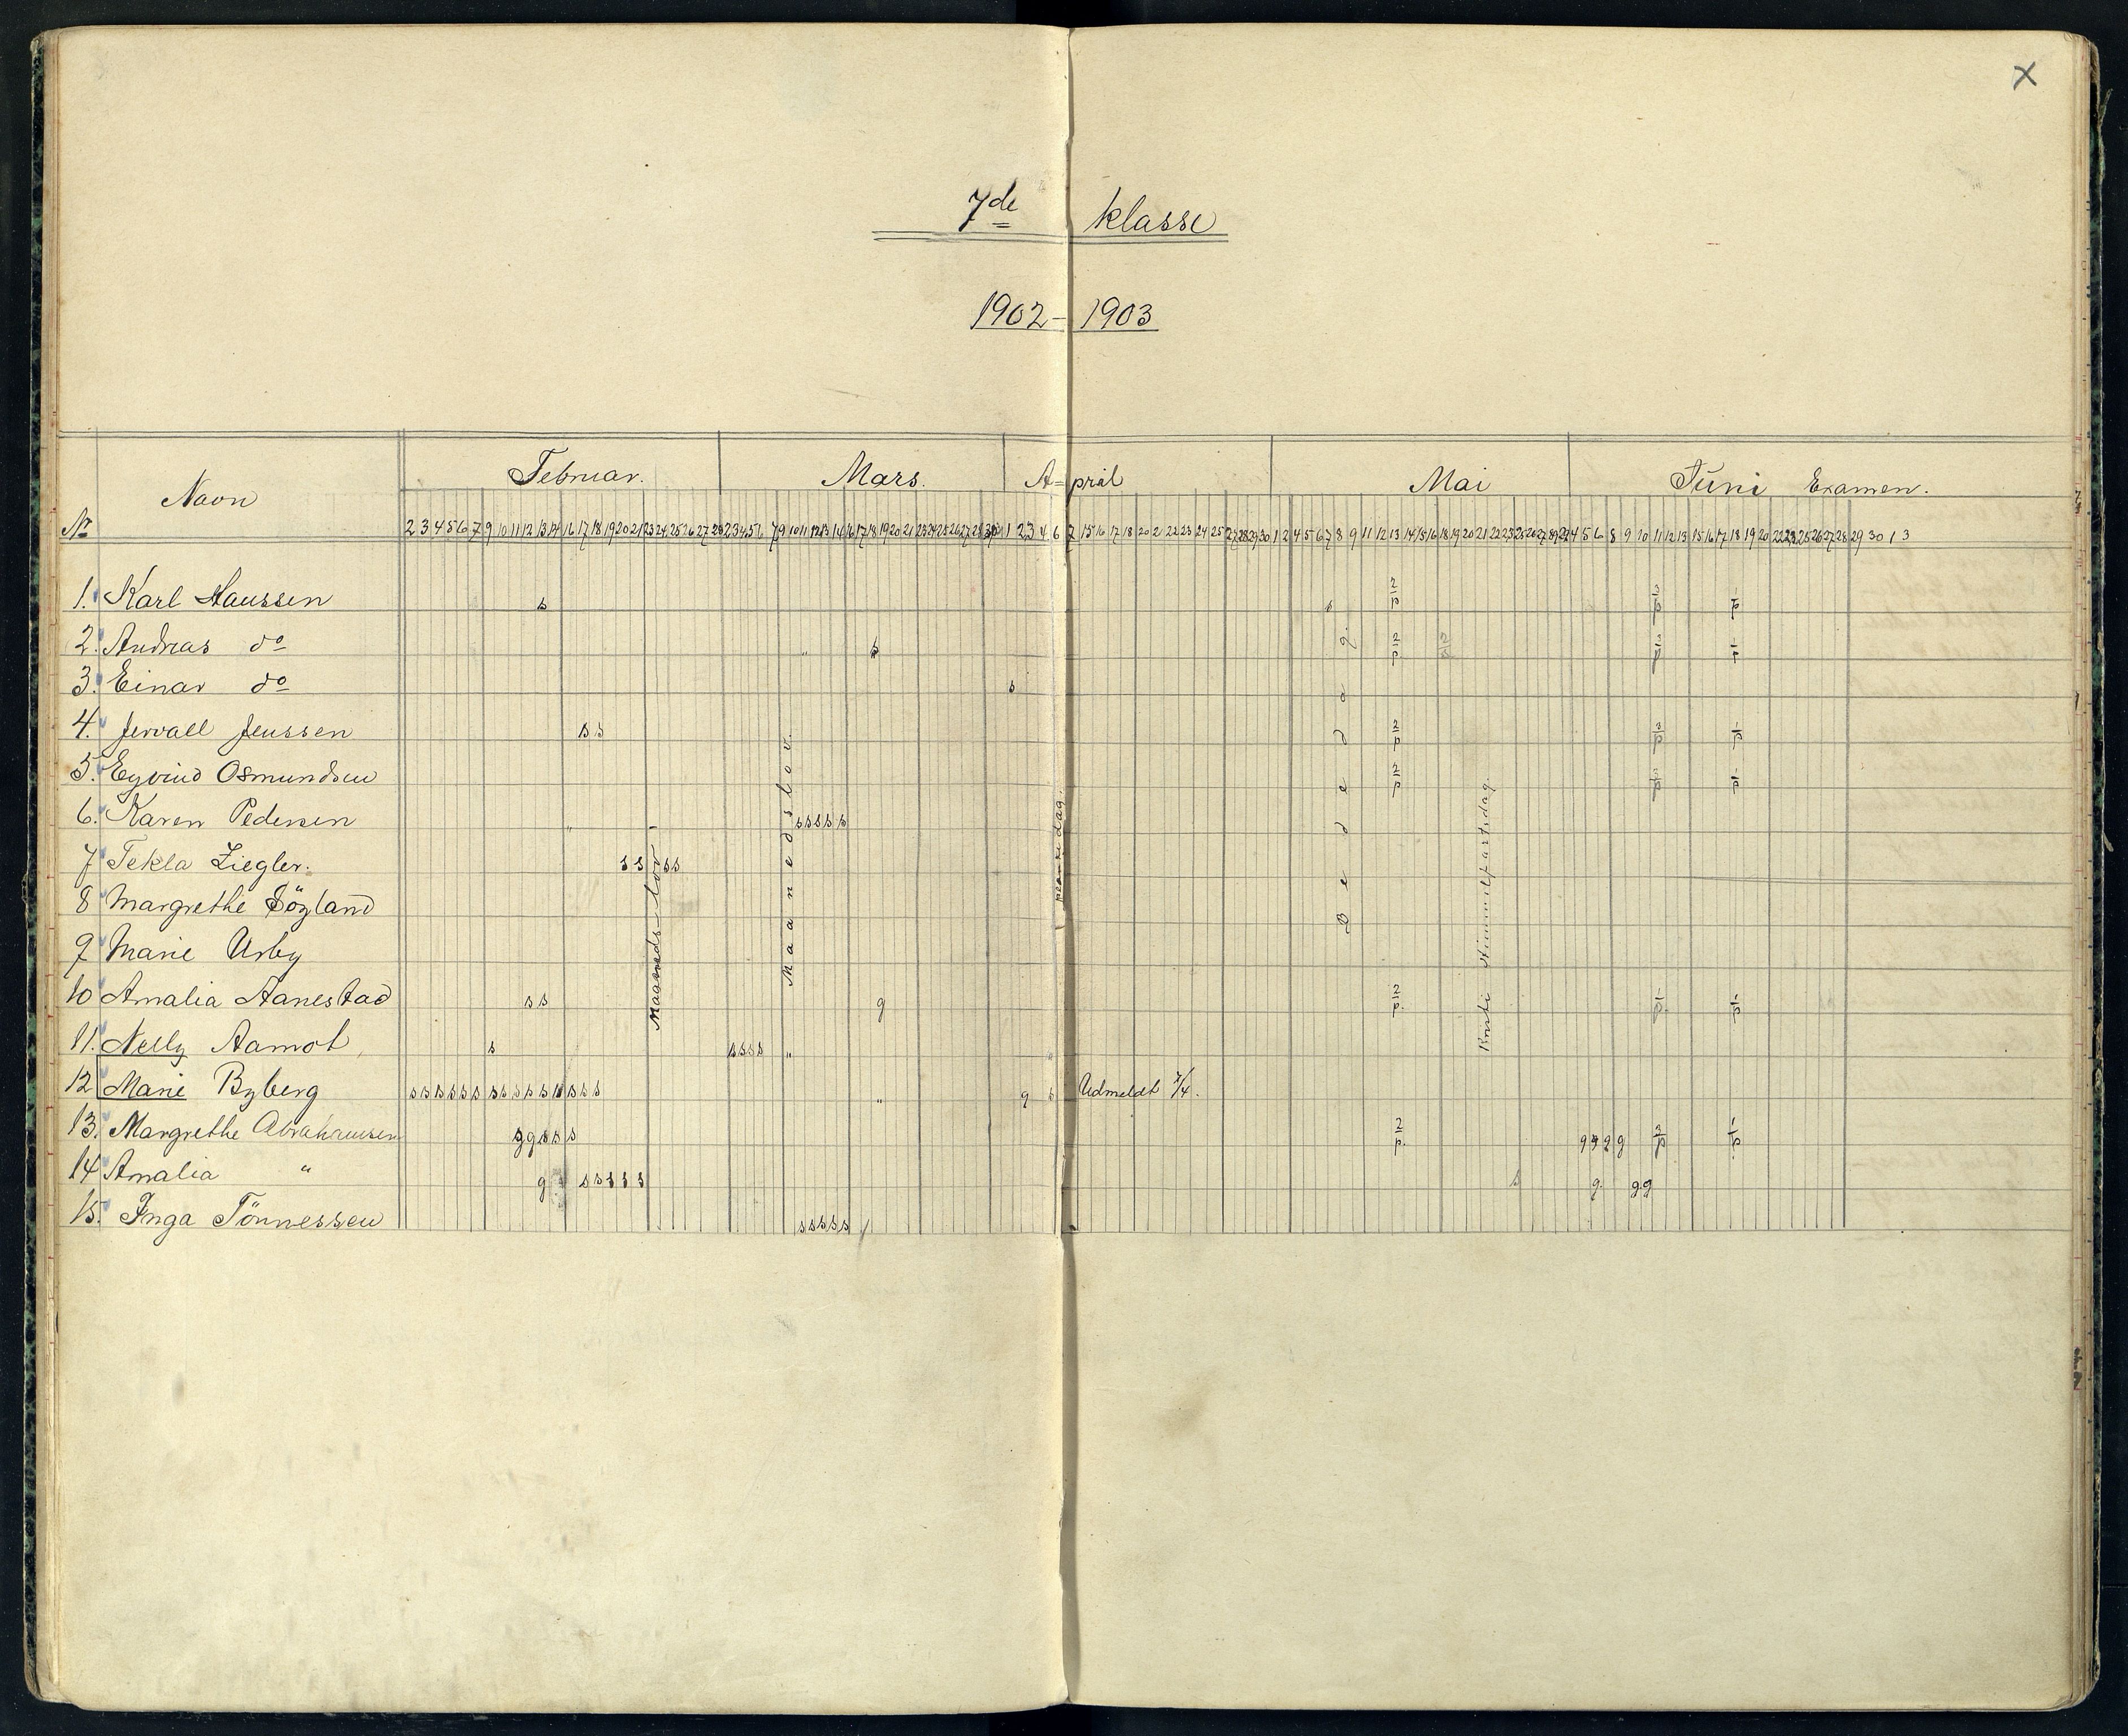 X
7de klasse
1902-1903
No Navn Februar. Mars. April Mai Juni Examen.
2 3 4 5 6 7 9 10 11 12 13 14 16 17 18 19 20 21 23 24 25 26 27 28 2 3 4 5 6 7 9 10 11 12 13 14 16 17 18 19 20 21 23 24 25 26 27 28 30 31 1 2 3 4 6 7 15 16 17 18 20 21 22 23 24 25 27 28 29 30 1 2 4 5 6 7 8 9 11 12 13 14 15 16 18 19 20 21 22 23 25 26 27 28 29 2 3 4 5 6 8 9 10 11 12 13 15 16 17 18 19 20 22 23 24 25 26 27 28 29 30 1 3
1. Karl Haussen s s 2/p 2/p 1/p
2. Andreas do " s 2/p 2/p 2/p 1/p
3. Einar do s
4. Jervall Jenssen s s 2/p 2/p 1/p
5. Eyvind Osmundsen 2/p 2/p 1/p
6. Karen Pedersen " s s s s s
7 Tekla Ziegler. s s s s
8 Margrethe Söyland
9 Marie Urby
10 Amalia Aanestad s s g 2/p. 1/p. 1/p
11. Nelly Aamot s s s s s " "
12 Marie Byberg s s s s s s s s s s s s s s s " g s Udmeldt 7/4.
13. Margrethe Abrahamsen g g s s s 2/p. g g g g 2/p 1/p
14 Amalia " g s s s s s s g. g. g
15. Inga Tönnessen s s s s s /
Maaneds lov
Maanedslov.
Bededag
Kristi Himmelfartsdag